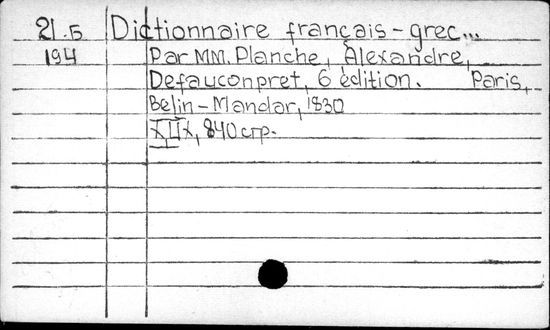 21.5 Dictionnaire français-grec...
194 Par MM. Planche, Alexandre,
Defauconpret, 6 édition. Paris,
Belin-Mandar, 1830
840 стр.